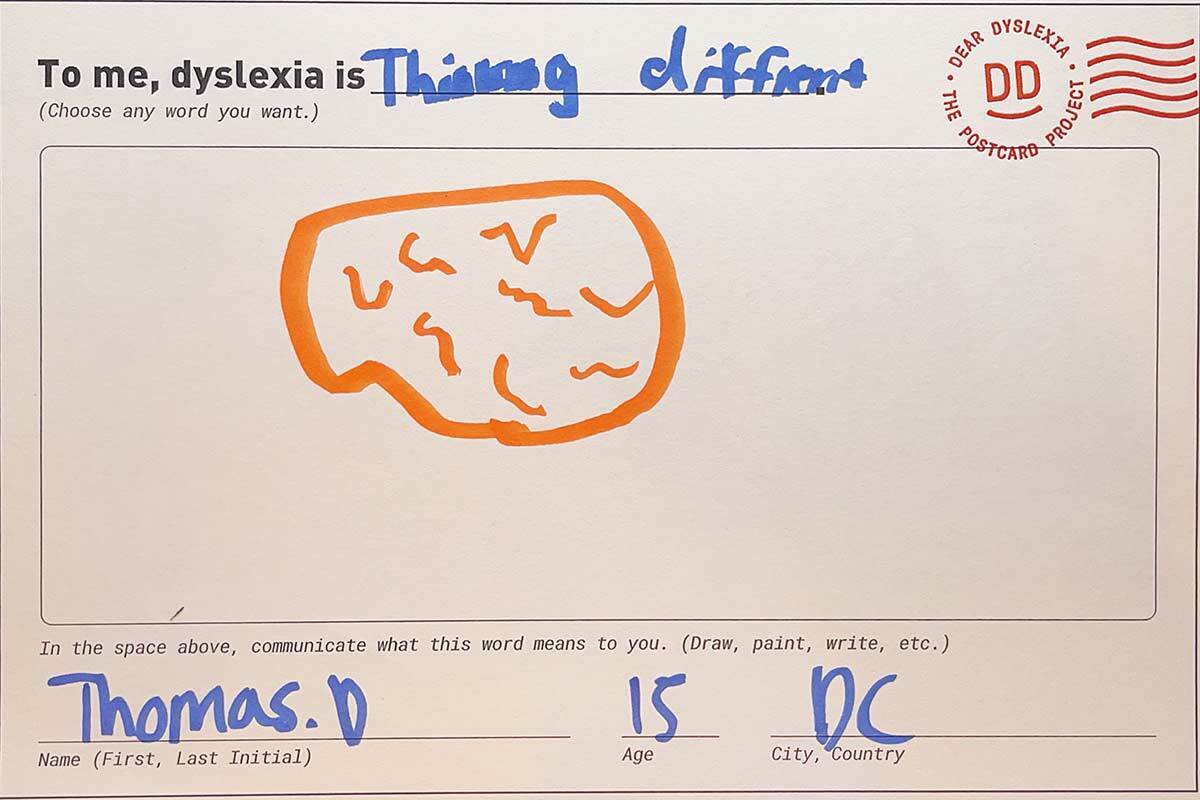 To me, dyslexia is Thinking diffrent.
(Choose any word you want.)
• DEAR DYSLEXIA • THE POSTCARD PROJECT
DD
In the space above, communicate what this word means to you. (Draw, paint, write, etc.)
Thomas. D 15 DC
Name (First, Last Initial) Age City, Country